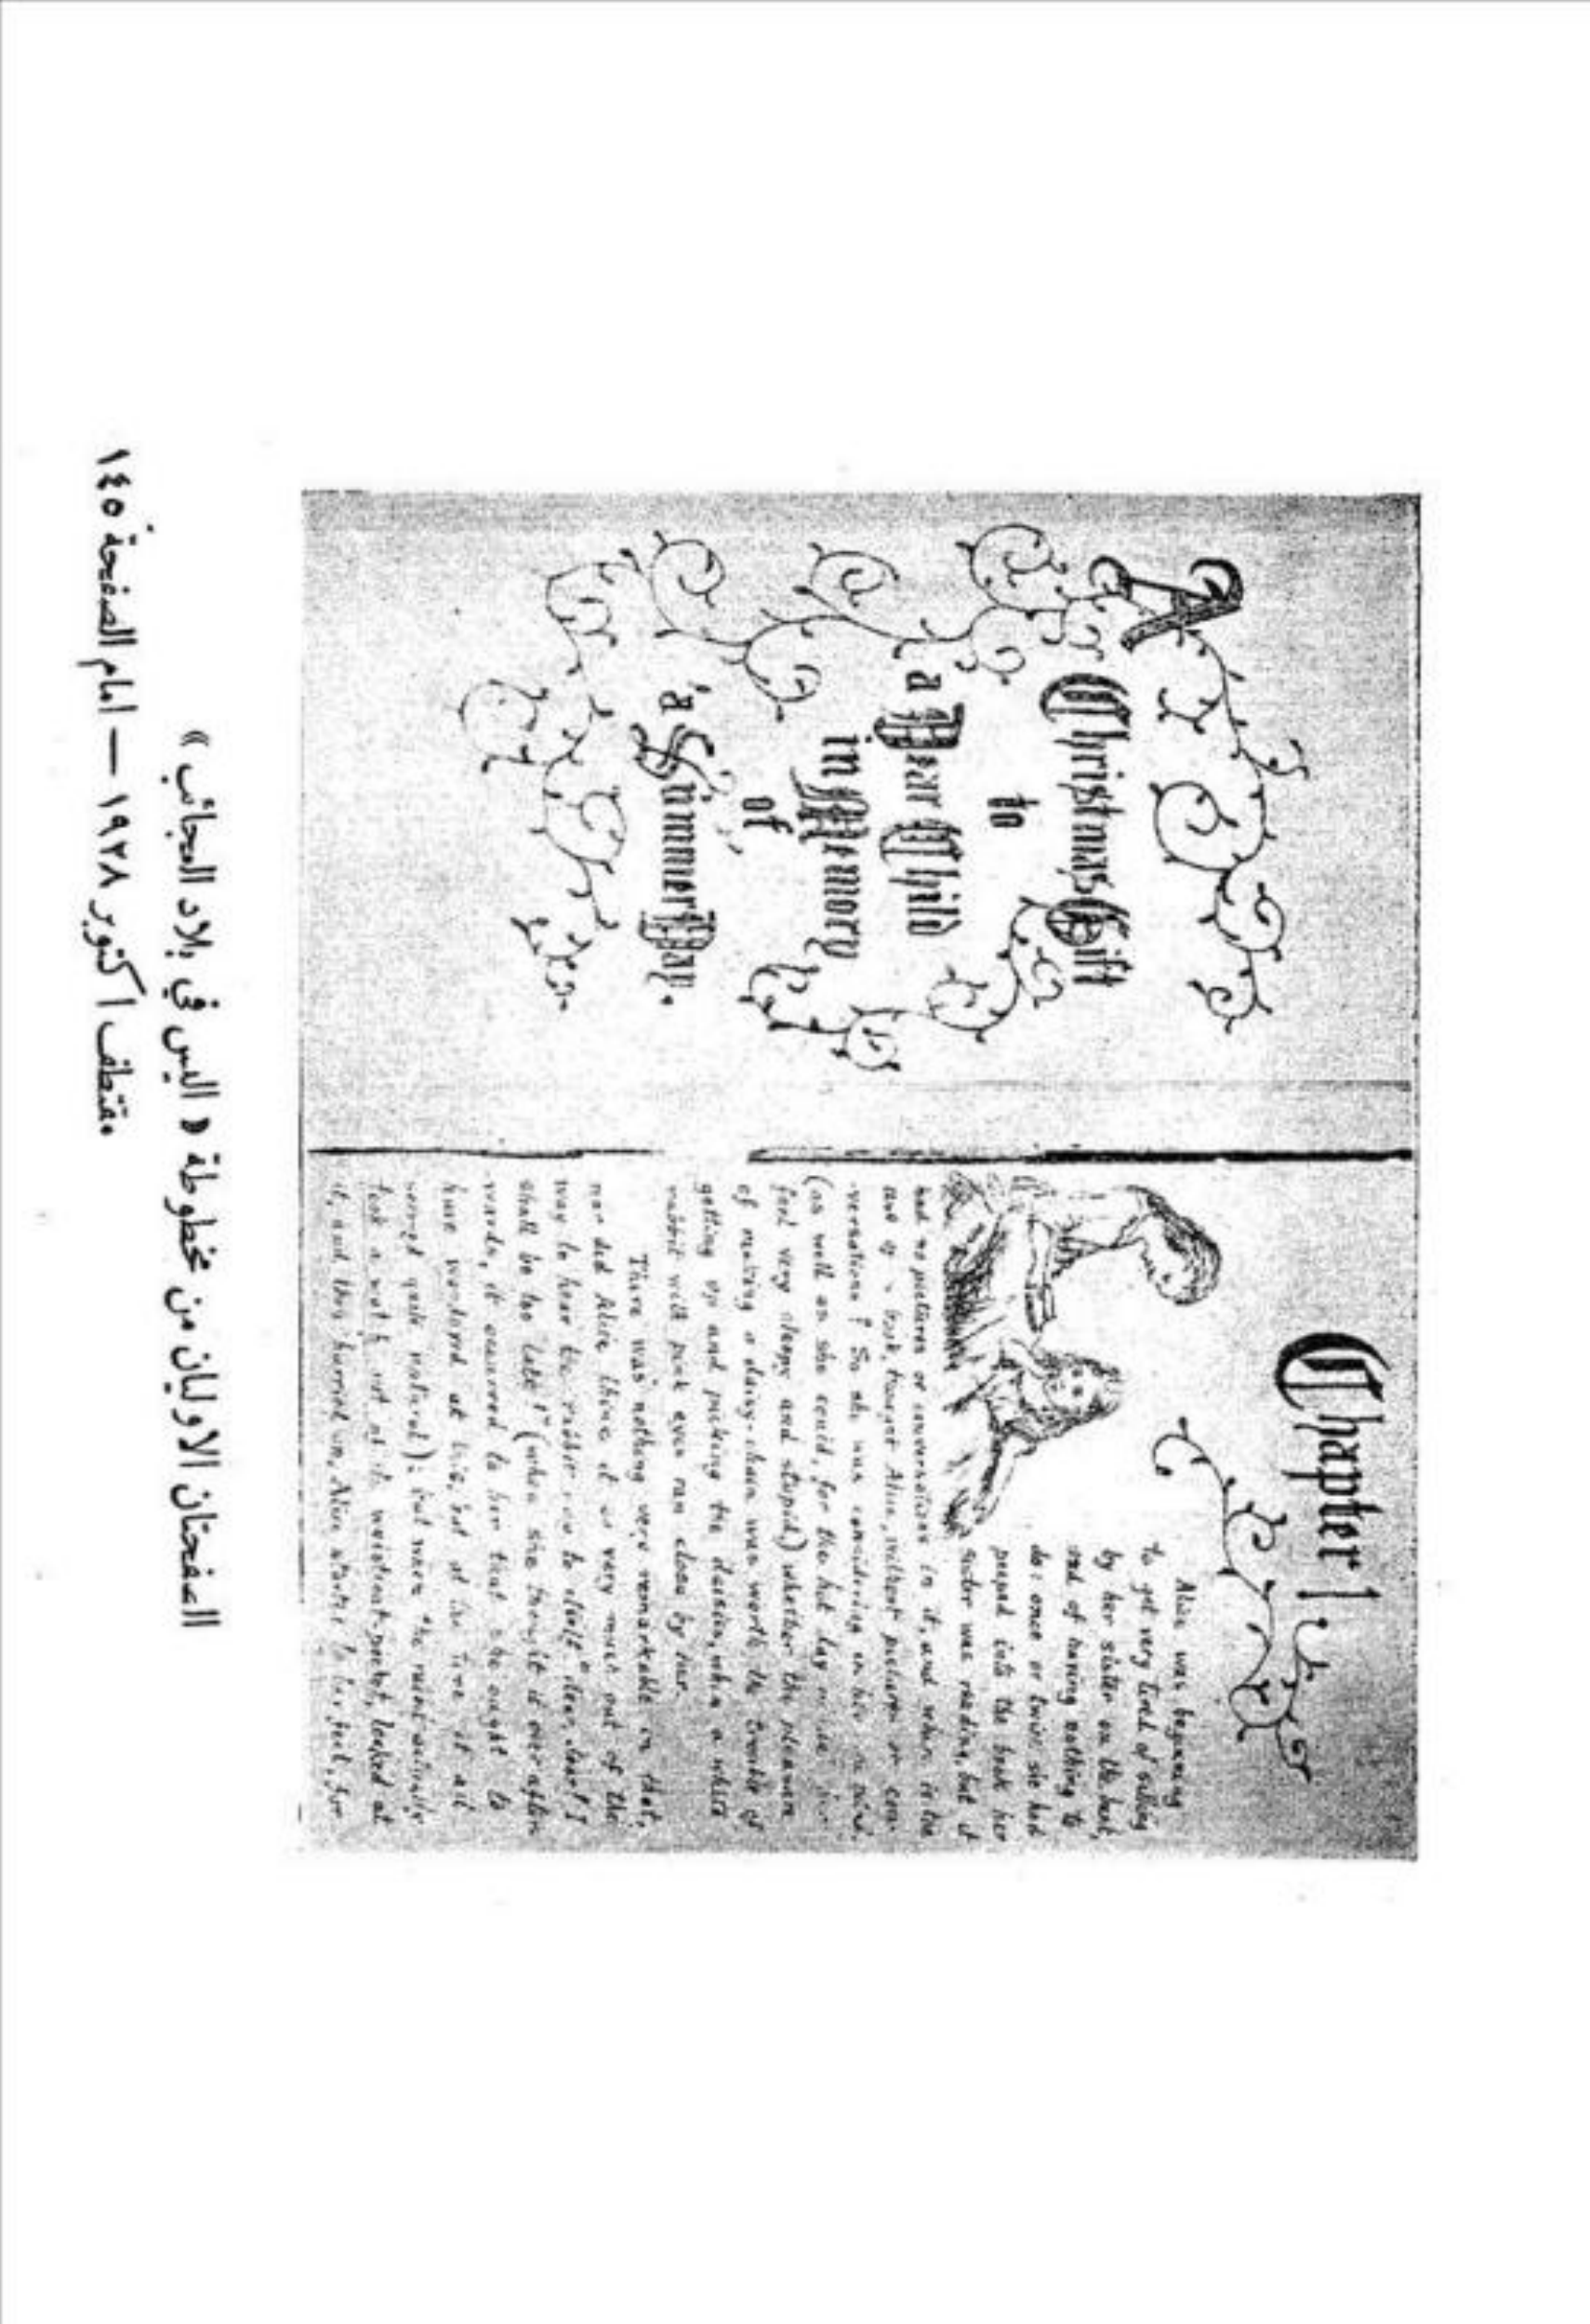 A
Christmas Gift
to
a Dear Child
in Memory
of
a Summer Day.
Chapter I
Alice was beginning
to get very tired of sitting
by her sister on the bank,
and of having nothing to
do: once or twice she had
peeped into the book her
sister was reading, but it
had no pictures or conversations in it, and where is the
use of a book, thought Alice, without pictures or con-
-versations? So she was considering in her own mind,
(as well as she could, for the hot day made her
feel very sleepy and stupid,) whether the pleasure
of making a daisy-chain was worth the trouble of
getting up and picking the daisies, when a white
rabbit with pink eyes ran close by her.
There was nothing very remarkable in that,
nor did Alice think it so very much out of the
way to hear the rabbit say to itself "dear, dear! I
shall be too late!" (when she thought it over after-
wards, it occurred to her that she ought to
have wondered at this, but at the time it all
seemed quite natural): but when the rabbit actually
took a watch out of its waistcoat-pocket, looked at
it, and then hurried on, Alice started to her feet, for
الصفحتان الاوليان من مخطوطة « اليس في بلاد العجائب »
مقتطف اكتوبر ١٩٢٨ — امام الصفحة ١٤٥